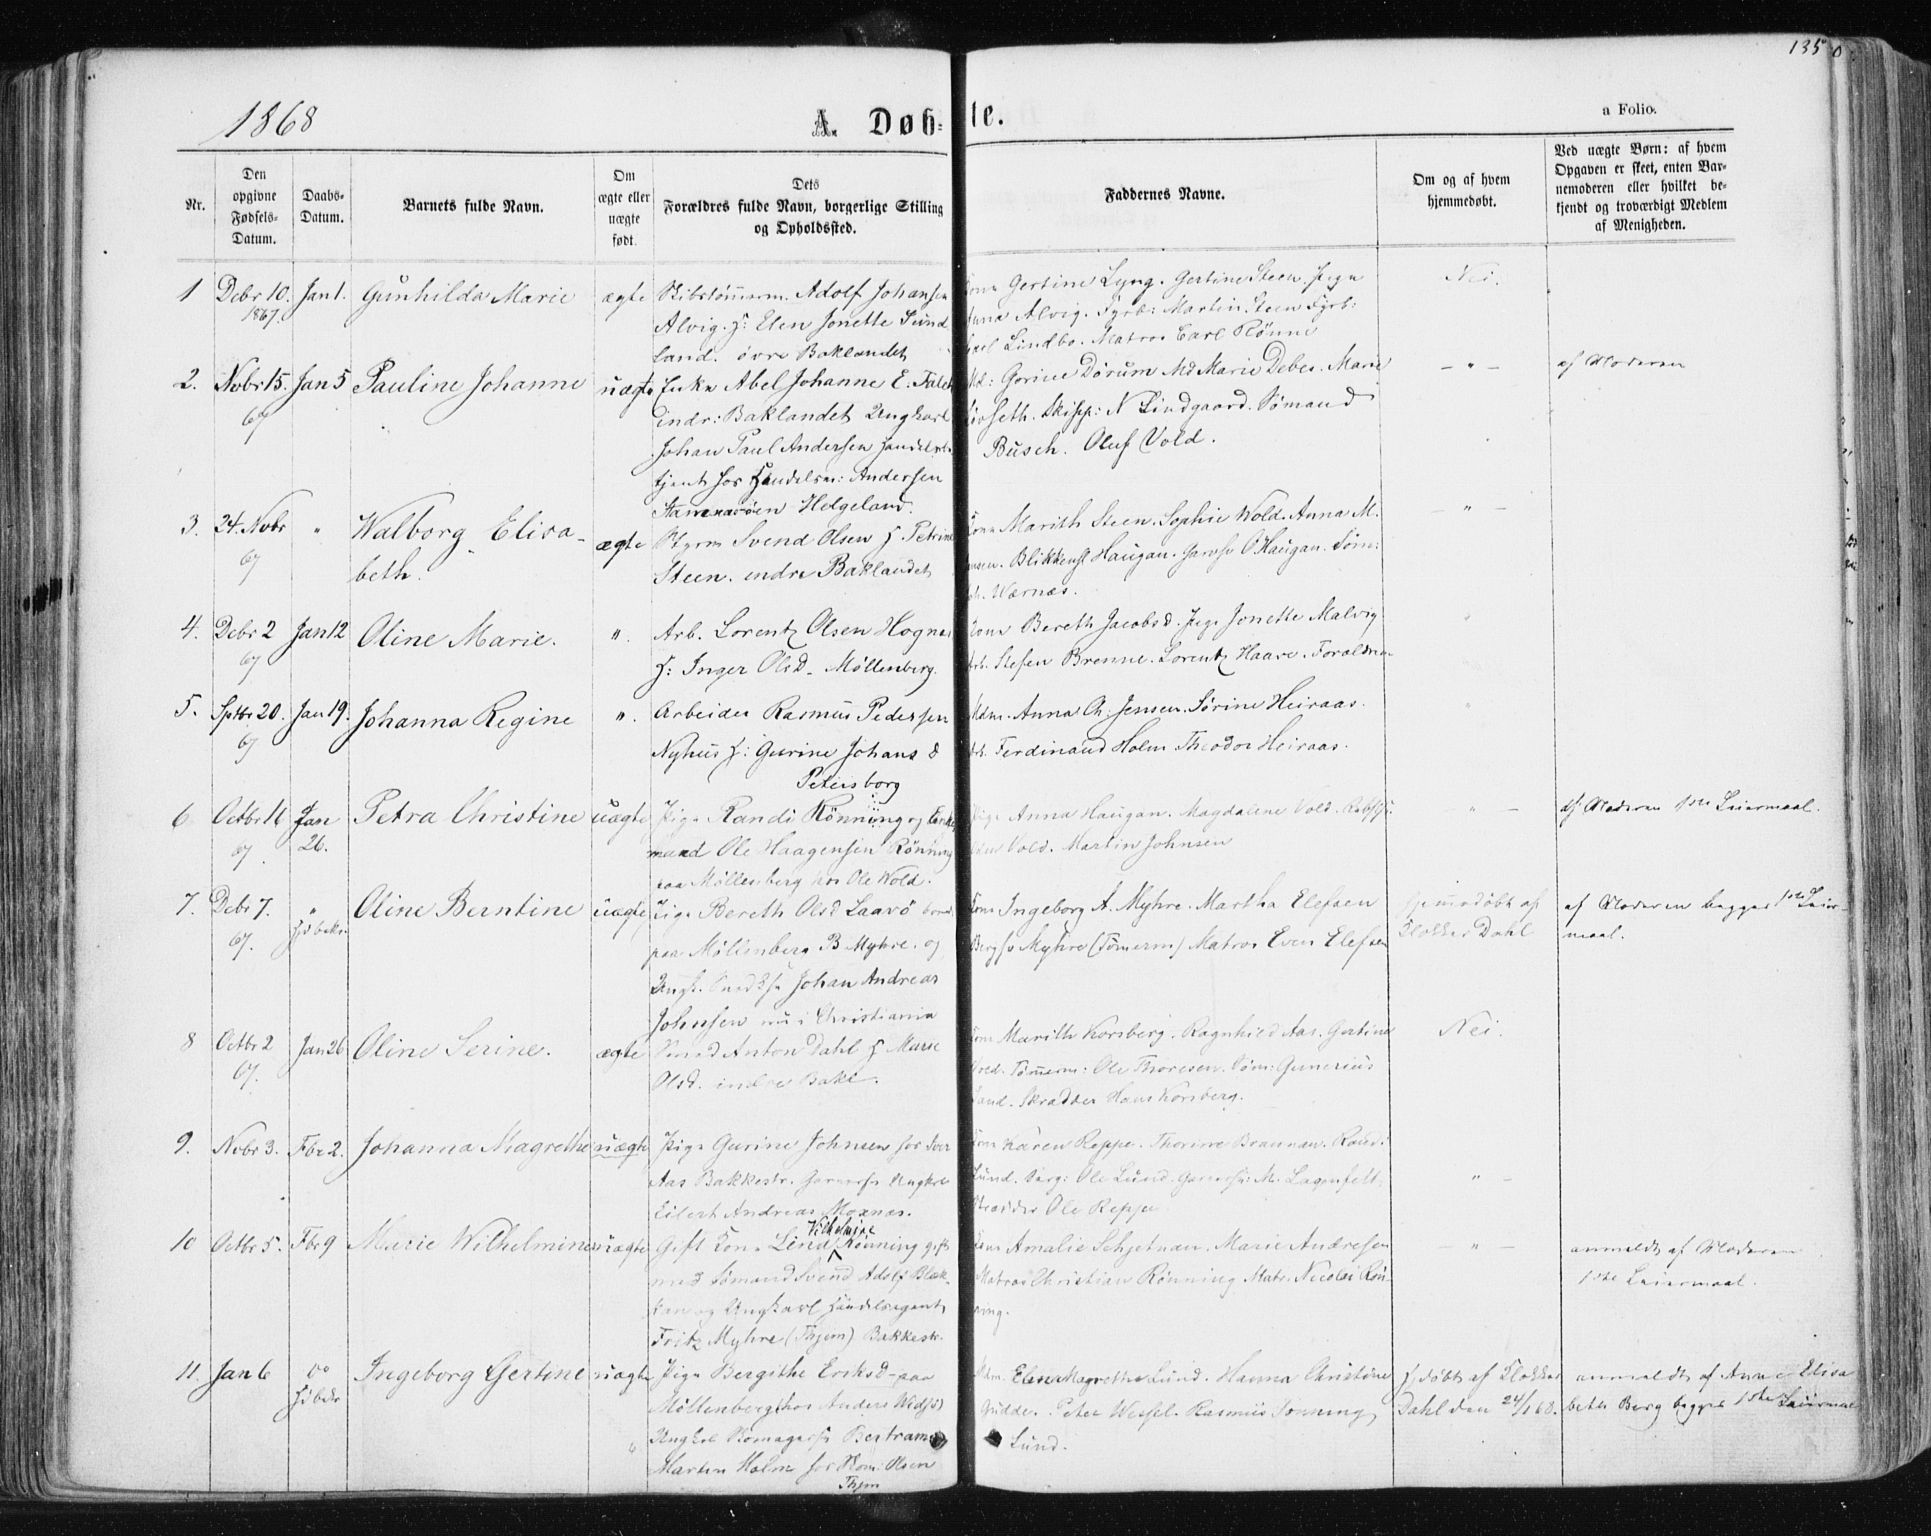 1350
1868
A. Døb-te.
a Folio.
Nr.
Den opgivne Fødsels-Datum.
Daabs-Datum.
Barnets fulde Navn.
Om ægte eller uægte født.
Dets Forældres fulde Navn, borgerlige Stilling og Opholdssted.
Faddernes Navne.
Om og af hvem hjemmedøbt.
Ved uægte Børn: af hvem Opgaven er skeet, enten Barnemoderen eller hvilket bekjendt og troværdigt Medlem af Menigheden.
1 Debr 10. 1867. Jan 1. Gunhilda Marie ægte
Adolf Johansen
Alvig. H: Elen Jonette Sund
land. øvre Baklandet
Gertine Lyng. Gertine Steen. Pige
Anna Alvig. Fyrb: Martin Steen Fyrb:
Lindbo. Matros Carl Rønne
Nei.
2. Nobr 15. 67 Jan 5 Pauline Johanne uægte
Enke Abel Johanne E. Falck
indr: Baklandet Ungkarl
Johan Paul Andersen Handels
tjent hos Handelsm: Andersen
Helgeland.
Gorine Dørum Md Marie Debes. Marie
Skipp: N Lindgaard. Sømand
Busch. Oluf Vold.
— " —
af Moderen
3. 24. Nobr 67 " Walborg Elisa-
beth. ægte
Styrm Svend Olsen H Petrine
Steen. indre Baklandet
Kone Marith Steen. Sophie Wold. Anna M.
Blikkensl Haugan. Garvsv O Haugan. Søm:
Wærnæs.
— " —
4. Debr 2 67 Jan 12 Oline Marie. ".
Arb. Lorentz Olsen Hognes
H: Inger Olsd. Møllenberg.
Kone Bereth Jacobsd. Pige Jonette Malvig
Arb. Stefen Brenne. Lorentz Haare. Forældrene
"
5. Sptbr 20. 67 Jan 19. Johanna Regine ".
Arbeider Rasmus Pedersen
Nyhus H: Gurine Johansd
Petersborg
Mdm. Anna Ch. Jensen. Sørine Heiraas.
Arb. Ferdinand Holm Theodor Heiraas.
"
6. Octbr 16 67 Jan 26. Petra Christine uægte
Pige Randi Rønning og Enke
mand Ole Haagensen Rønning
paa Møllenberg hos Ole Wold.
Pige Anna Haugan. Magdalene Vold.
Vold. Martin Johnsen
" —
af Moderen 1ste Leiermaal.
7. Debr 7. 67. " Hjd bekr. Oline Berntine uægte
Pige Bereth Olsd Laavø
paa Møllenberg B Myhre. og
Ungk. Johan Andreas
Johnsen nu i Christiania
Kone Ingeborg A. Myhre. Martha Elefsen
Myhre (Tømerm) Matros Even Elefsen
Hjemmedøbt af
Klokker Dahl
af Moderen begges 1ste Leier-
maal.
8 Octbr 2 67. Jan 26 Oline Serine. ægte
Anton Dahl H Marie
Olsd. indre Bakl.
Kone Marith Korsberg. Ragnhild Aas. Gertine
Tømerm: Ole Thoresen. Søm: Gunerius
Sand. Skrædder Hans Korsberg.
Nei.
9. Nobr 3. Fbr 2. Johanna Magrethe uægte
Pige Gurine Johnsen hos
Aas Bakkestr. Garversv Ungkrl
Eilert Andreas Moxnæs.
Kone Karen Reppe. Thorine Brannan.
Lund. Ole Lund. Garversv: M. Lagenfelt.
Skrædder Ole Reppe
" —
10 Octbr 5. Fbr 9 Marie Wilhelmine uægte
Gift Kone Lind Vilhelmine Rønning gift
med Sømand Svend Adolf Blek-
kan og Ungkarl Handelsagent
Fritz Myhre (Thjem) Bakkestr.
Kone Amalie Schjetnan. Marie Andresen
Matros Christian Rønning Matr. Nicolai Røn-
ning.
— " —
anmeldt af Moderen
1ste Leiermaal.
11. Jan 6 Do Hjd bekr Ingeborg Gertine uægte
Pige Bergithe Eriksd paa
Møllenberg hos Anders
Ungkrl Bertram
Martin Holm hos Olsen
Thjem
Mdm. Elen Magrethe Lund. Hanna Christine
Gudde. Peter Wessel. Rasmus Rønning
Lund.
Hjdøbt af Klokker
Dahl den 24/1 68.
anmeldt af Anne Elisa
beth Berg begges 1ste Leiermaal